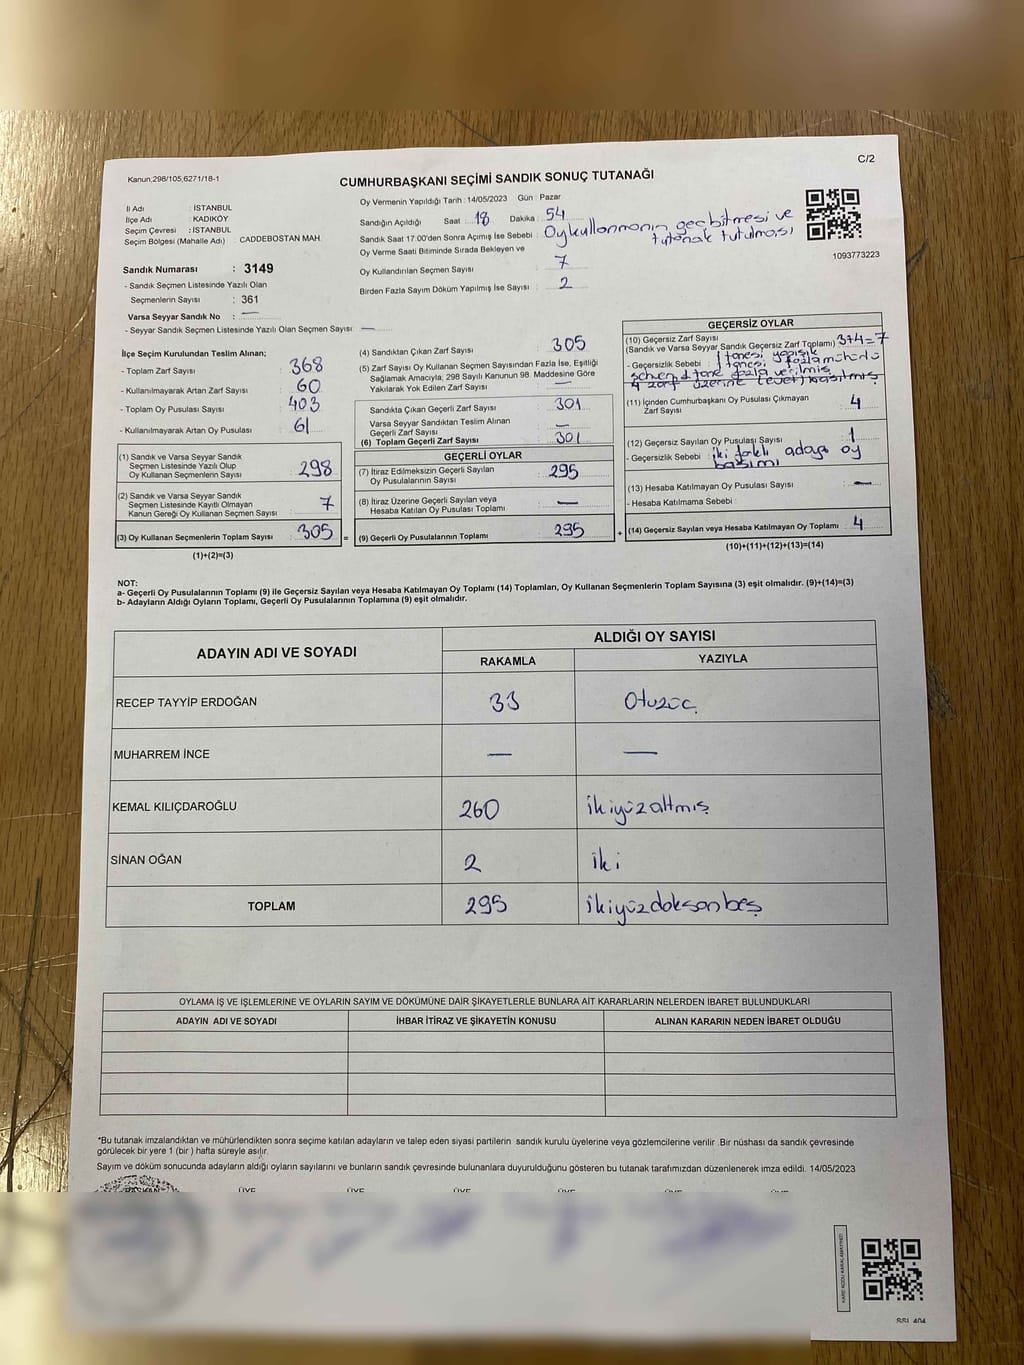 C/2
Kanun;298/105,6271/18-1
CUMHURBAŞKANI SEÇİMİ SANDIK SONUÇ TUTANAĞI
İl Adı : İSTANBUL
İlçe Adı : KADIKÖY
Seçim Çevresi : İSTANBUL
Seçim Bölgesi (Mahalle Adı) CADDEBOSTAN MAH.
Sandık Numarası : 3149
- Sandık Seçmen Listesinde Yazılı Olan
Seçmenlerin Sayısı : 361
Varsa Seyyar Sandık No : —
- Seyyar Sandık Seçmen Listesinde Yazılı Olan Seçmen Sayısı : —
Oy Vermenin Yapıldığı Tarih : 14/05/2023 Gün : Pazar
Sandığın Açıldığı Saat : 18 Dakika : 54
Sandık Saat 17.00'den Sonra Açımış İse Sebebi : Oykullanmanın geç bitmesi ve
tutanak tutulması
Oy Verme Saati Bitiminde Sırada Bekleyen ve
Oy Kullandırılan Seçmen Sayısı : 7
Birden Fazla Sayım Döküm Yapılmış İse Sayısı : 2
1093773223
İlçe Seçim Kurulundan Teslim Alınan;
- Toplam Zarf Sayısı : 368
- Kullanılmayarak Artan Zarf Sayısı : 60
- Toplam Oy Pusulası Sayısı : 403
- Kullanılmayarak Artan Oy Pusulası : 61
(1) Sandık ve Varsa Seyyar Sandık
Seçmen Listesinde Yazılı Olup
Oy Kullanan Seçmenlerin Sayısı : 298
(2) Sandık ve Varsa Seyyar Sandık
Seçmen Listesinde Kayıtlı Olmayan
Kanun Gereği Oy Kullanan Seçmen Sayısı : 7
(3) Oy Kullanan Seçmenlerin Toplam Sayısı : 305 =
(1)+(2)=(3)
(4) Sandıktan Çıkan Zarf Sayısı : 305
(5) Zarf Sayısı Oy Kullanan Seçmen Sayısından Fazla İse, Eşitliği
Sağlamak Amacıyla; 298 Sayılı Kanunun 98. Maddesine Göre
Yakılarak Yok Edilen Zarf Sayısı : —
Sandıkta Çıkan Geçerli Zarf Sayısı : 301
Varsa Seyyar Sandıktan Teslim Alınan
Geçerli Zarf Sayısı : —
(6) Toplam Geçerli Zarf Sayısı : 301
GEÇERLİ OYLAR
(7) İtiraz Edilmeksizin Geçerli Sayılan
Oy Pusulasının Sayısı : 295
(8) İtiraz Üzerine Geçerli Sayılan veya
Hesaba Katılan Oy Pusulası Toplamı : —
(9) Geçerli Oy Pusulalarının Toplamı : 295 +
GEÇERSİZ OYLAR
(10) Geçersiz Zarf Sayısı
(Sandık ve Varsa Seyyar Sandık Geçersiz Zarf Toplamı) 3+4=7
- Geçersizlik Sebebi : 1 tanesi yapışık
1 tanesi fazla mühürlü
4 zarf üzerine (evet) basılmış
(11) İçinden Cumhurbaşkanı Oy Pusulası Çıkmayan
Zarf Sayısı : 4
(12) Geçersiz Sayılan Oy Pusulası Sayısı : 1
- Geçersizlik Sebebi : iki farklı adaya oy
basımı
(13) Hesaba Katılmayan Oy Pusulası Sayısı : —
- Hesaba Katılmama Sebebi :
(14) Geçersiz Sayılan veya Hesaba Katılmayan Oy Toplamı : 4
(10)+(11)+(12)+(13)=(14)
NOT:
a- Geçerli Oy Pusulalarının Toplamı (9) ile Geçersiz Sayılan veya Hesaba Katılmayan Oy Toplamı (14) Toplamları, Oy Kullanan Seçmenlerin Toplam Sayısına (3) eşit olmalıdır. (9)+(14)=(3)
b- Adayların Aldığı Oyların Toplamı, Geçerli Oy Pusulalarının Toplamına (9) eşit olmalıdır.
ADAYIN ADI VE SOYADI
ALDIĞI OY SAYISI
RAKAMLA YAZIYLA
RECEP TAYYİP ERDOĞAN 33 Otuzüç
MUHARREM İNCE — —
KEMAL KILIÇDAROĞLU 260 ikiyüzaltmış
SİNAN OĞAN 2 iki
TOPLAM 295 ikiyüzdoksanbeş
OYLAMA İŞ VE İŞLEMLERİNE VE OYLARIN SAYIM VE DÖKÜMÜNE DAİR ŞİKAYETLERLE BUNLARA AİT KARARLARIN NELERDEN İBARET BULUNDUKLARI
ADAYIN ADI VE SOYADI İHBAR İTİRAZ VE ŞİKAYETİN KONUSU ALINAN KARARIN NEDEN İBARET OLDUĞU
*Bu tutanak imzalandıktan ve mühürlendikten sonra seçime katılan adayların ve talep eden siyasi partilerin sandık kurulu üyelerine veya gözlemcilerine verilir .Bir nüshası da sandık çevresinde
görülecek bir yere 1 (bir ) hafta süreyle asılır.
Sayım ve döküm sonucunda adayların aldığı oyların sayılarını ve bunların sandık çevresinde bulunanlara duyurulduğunu gösteren bu tutanak tarafımızdan düzenlenerek imza edildi. 14/05/2023
BAŞKAN ÜYE ÜYE ÜYE ÜYE ÜYE ÜYE